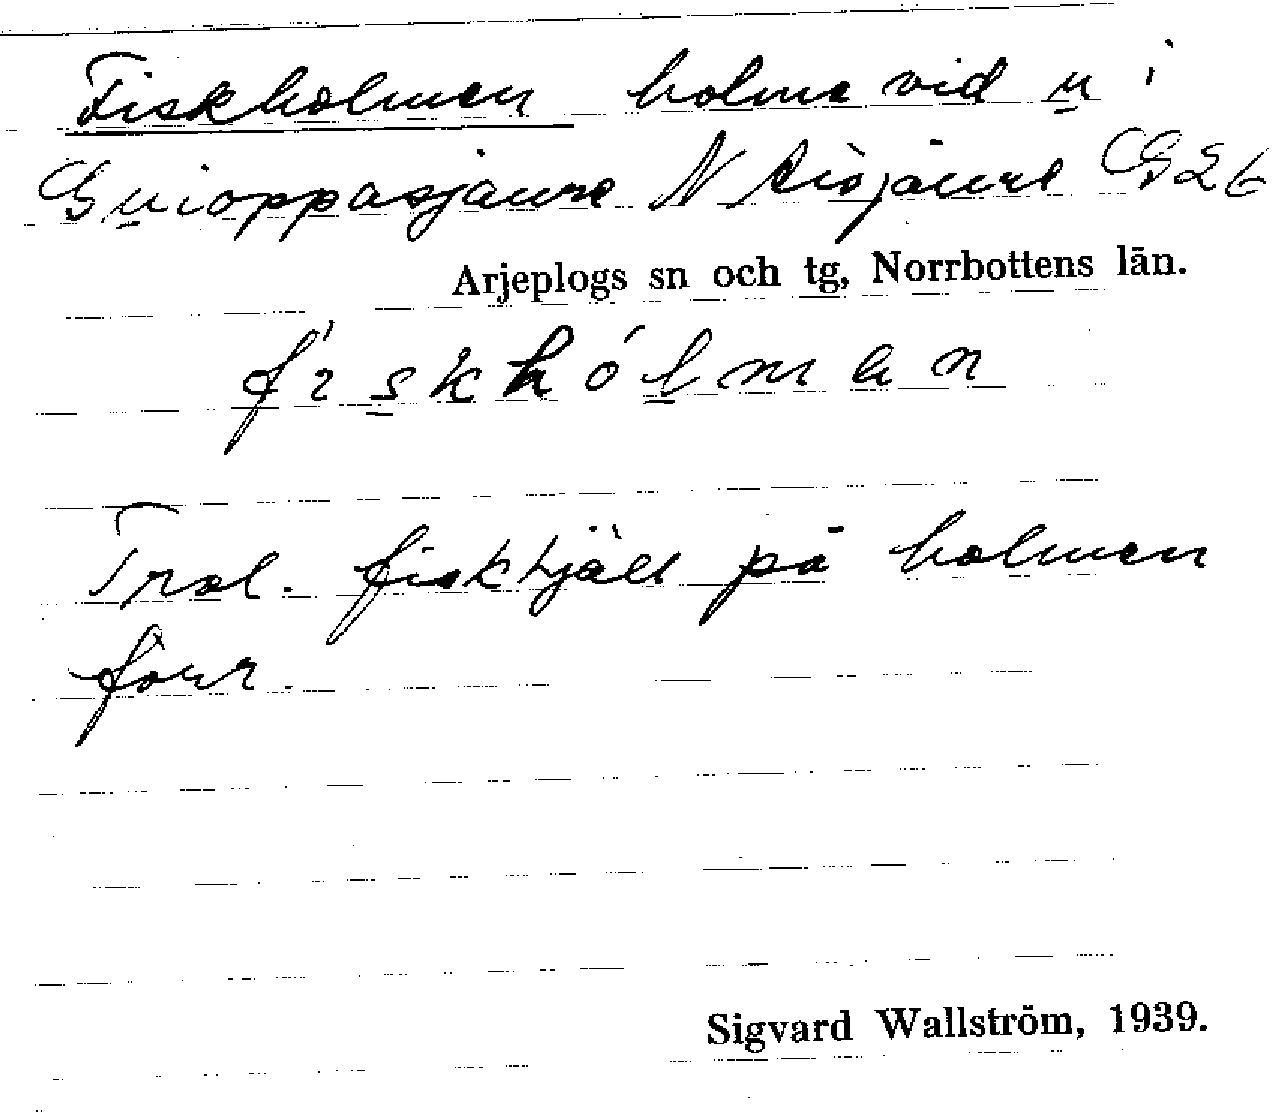 Fiskholmen holme vid u i
Guioppasjaure N
Arjeplogs sn och tg, Norrbottens län.
fiskhólman
Trol. fiskhjäll på holmen
förr.
Sigvard Wallström, 1939.